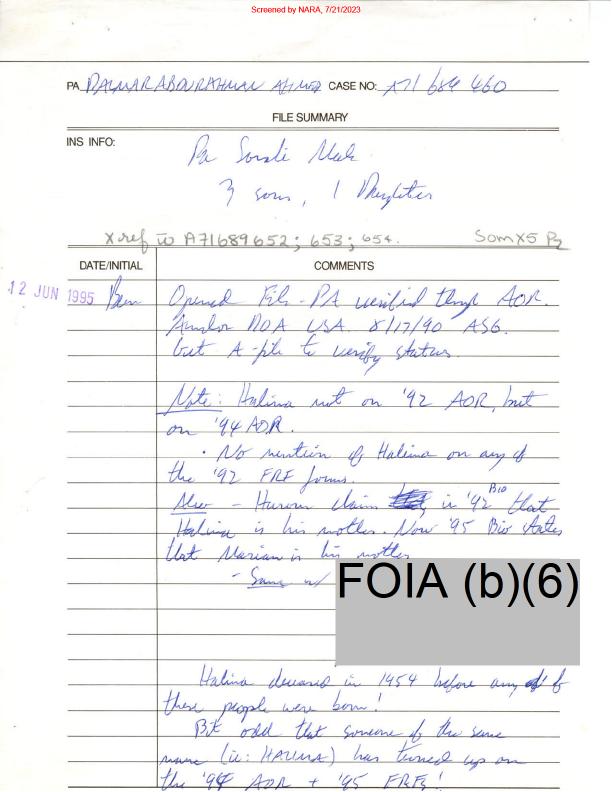 Screened by NARA, 7/21/2023
PA DALMAR ABDURAHMAN AHMED CASE NO: A71 689 460
FILE SUMMARY
INS INFO:
Pa Somali Male
3 sons, 1 Daughter
X ref to A71689652; 653; 654. Som X5 P2
DATE/INITIAL COMMENTS
12 JUN 1995 Opened File - PA verified through AOR.
USA. 8/17/90 AS6.
but A-file to verify status.
Note: Halima not on '92 AOR, but
on '94 AOR.
• No mention of Halima on any of
the '92 FRF forms.
Also - claim in '92 Bio that
Halima is his mother. Now '95 Bio states
that Mariam is his mother
- Same w/
FOIA (b)(6)
Halima deceased in 1954 before any of
these people were born!
Bit odd that someone of the same
name (ie: HALIMA) has turned up on
the '94 AOR + '95 FRFs!